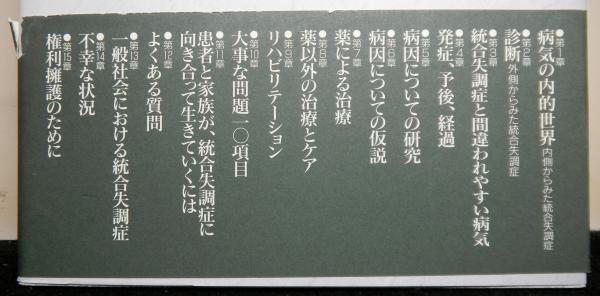 ●第1章
病気の内的世界 内側からみた統合失調症
●第2章
診断 外側からみた統合失調症
●第3章
統合失調症と間違われやすい病気
●第4章
発症、予後、経過
●第5章
病因についての研究
●第6章
病因についての仮説
●第7章
薬による治療
●第8章
薬以外の治療とケア
●第9章
リハビリテーション
●第10章
大事な問題一〇項目
●第11章
患者と家族が、統合失調症に
向き合って生きていくには
●第12章
よくある質問
●第13章
一般社会における統合失調症
●第14章
不幸な状況
●第15章
権利擁護のために